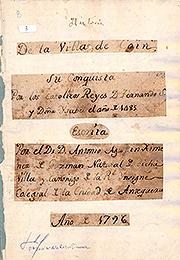 3
Historia
De la Villa, de Coin
Su Conquista
Por los Catolicos Reyes D. Fernando 5º
y Doña Ysabel el año de 1485.
Escrita
Por el Dr. D. Antonio Agustin Ximenez
de Guzman Natural de dicha
Villa y Canonigo de la Rl. Ynsigne
Colegial de la Ciudad de Antequera
Año de 1796